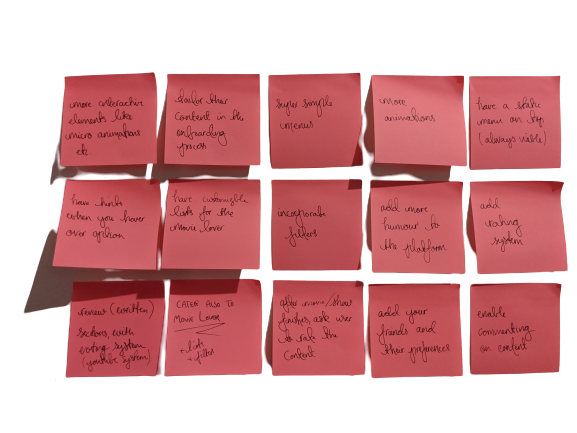 more interactive
elements like
micro animations
etc.
content in the
onboarding
process
super simple
menus
more
animations
have a static
menu on top
(always visible)
have hints
when you hover
over option
have customizable
lists for the
movie lover
incorporate
filters
add more
humour to
the platform
add
rating
system
review (written)
section with
voting system
(youtube system)
CATER ALSO TO
MOVIE LOVER
+ lists
+ filters
after movie/show
finishes, ask user
to rate the
content
add your
friends and
their preferences
enable
commenting
on content